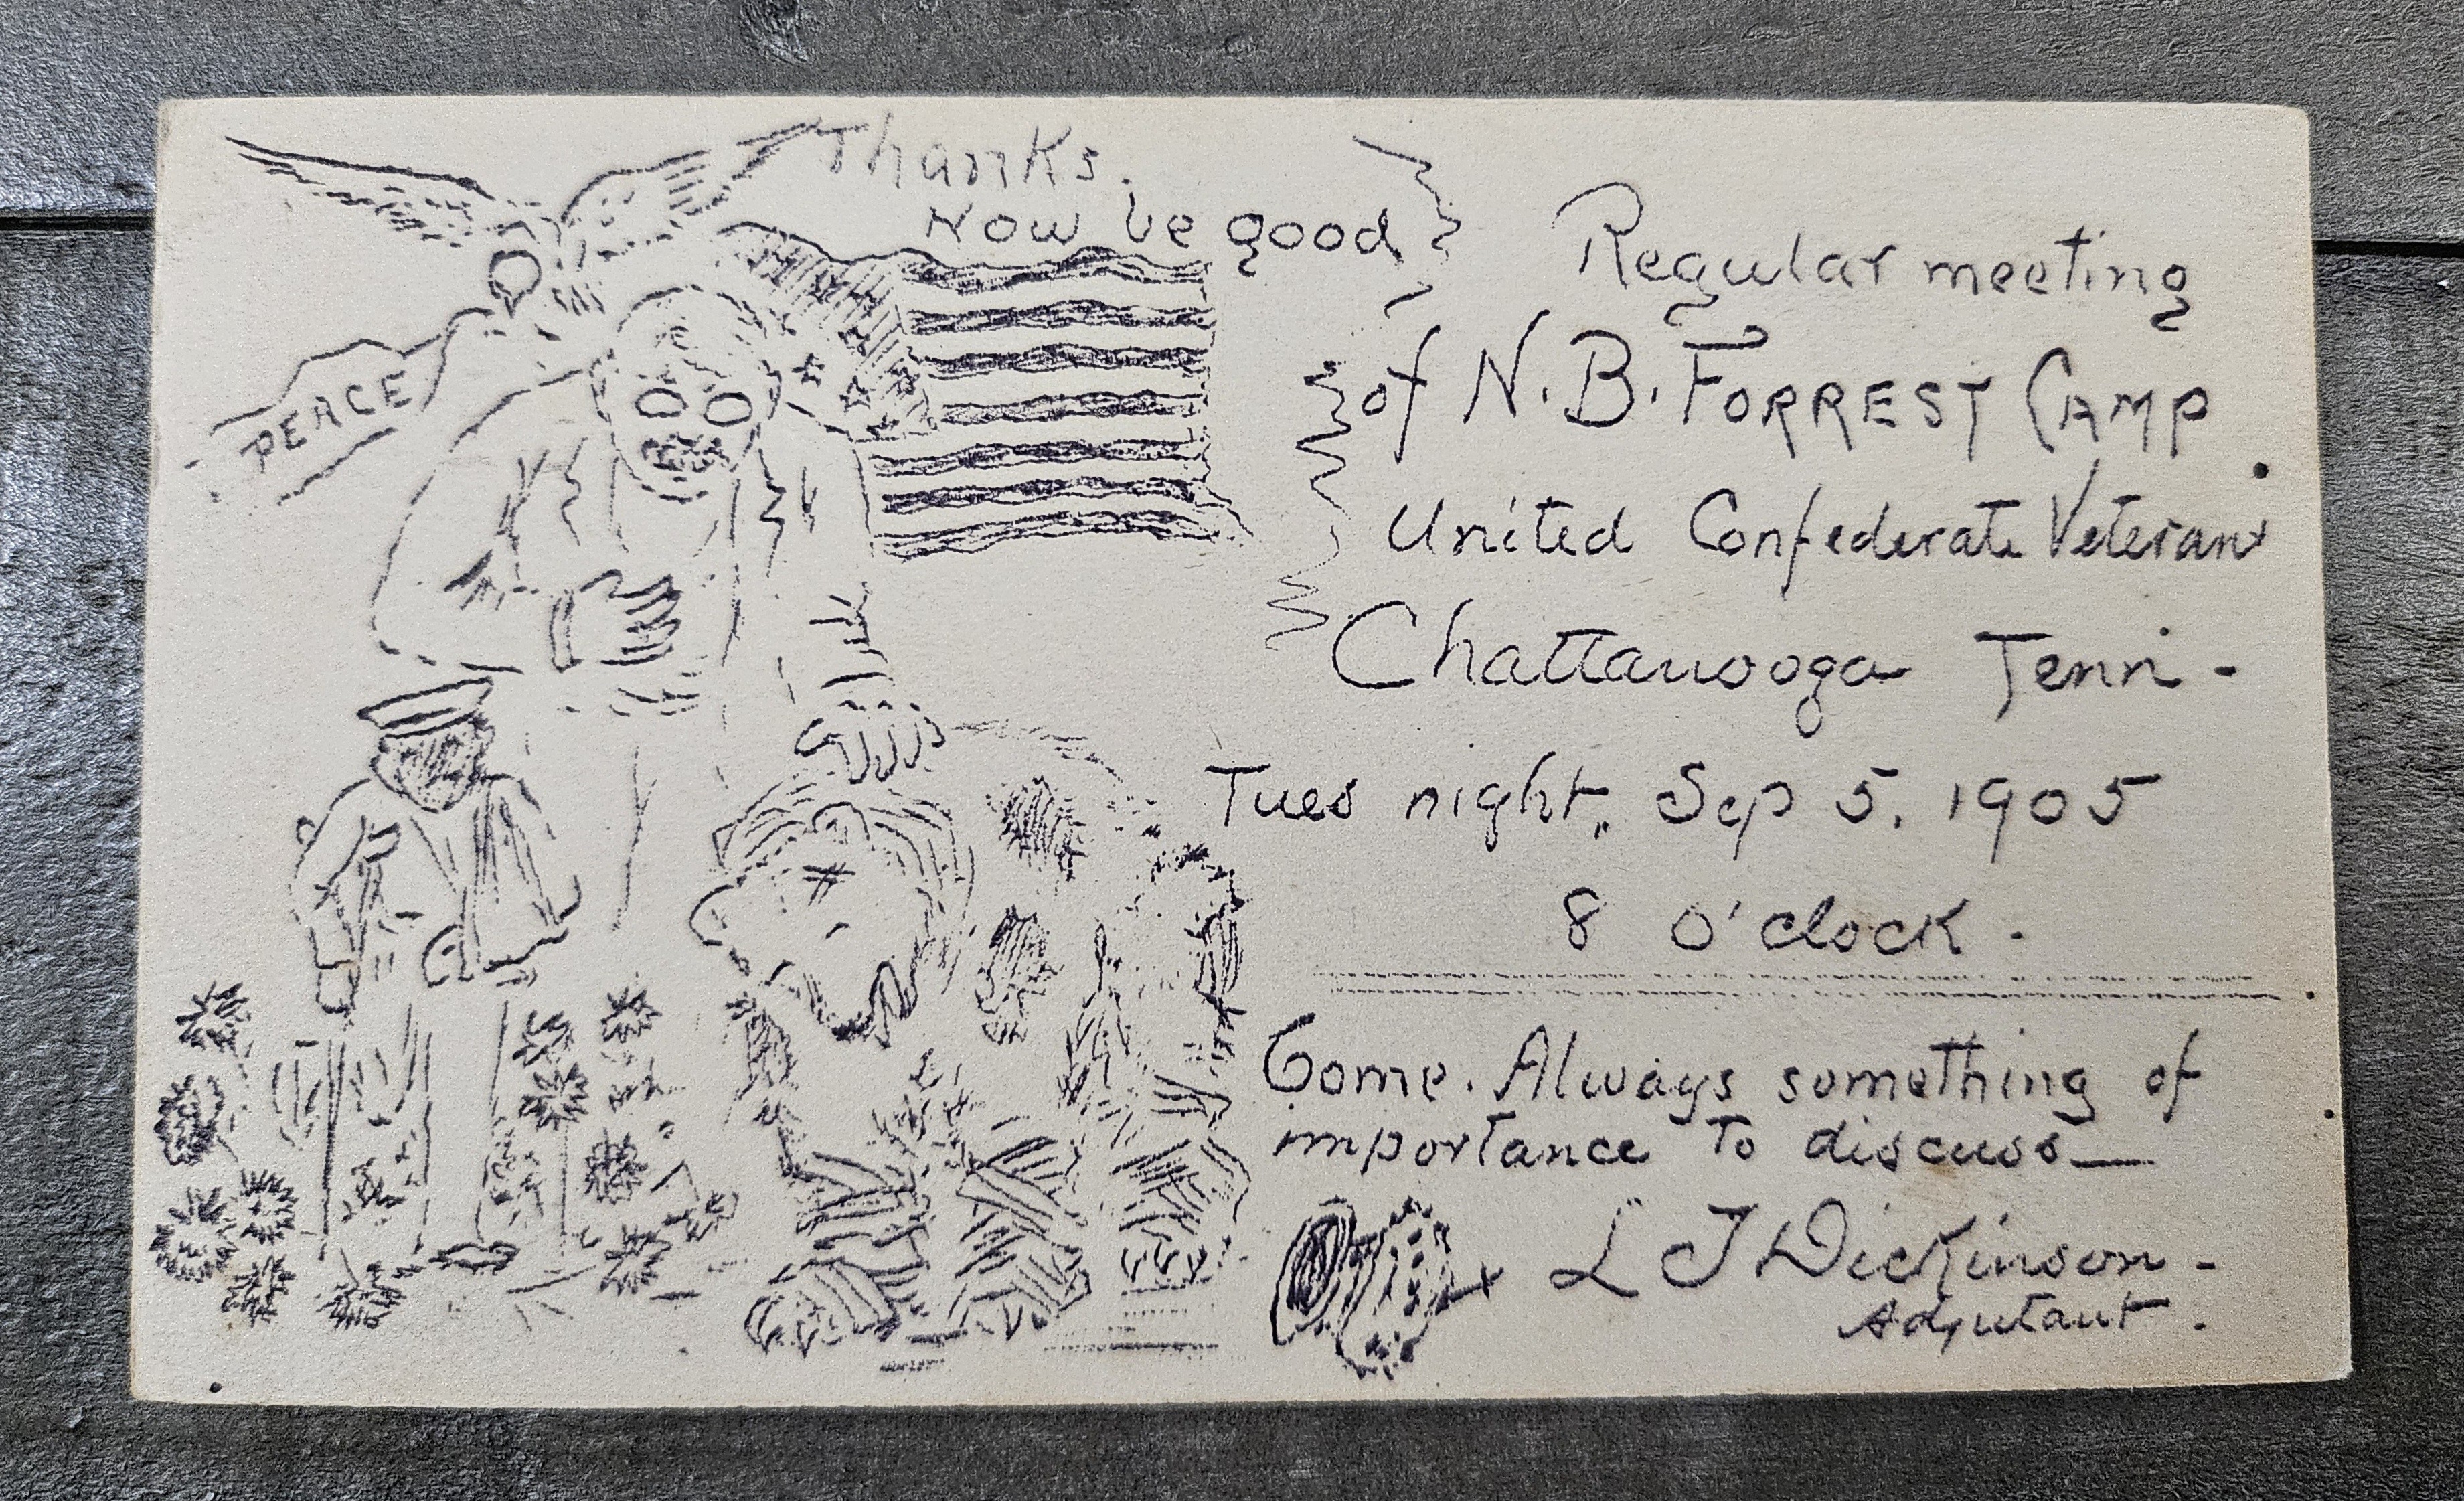 Thanks.
Now be good
PEACE
Regular meeting
of N. B. FORREST CAMP
United Confederate Veterans
Chattanooga Tenn-
Tues night, Sep 5, 1905
8 O'clock -
Come. Always something of
importance to discuss—
L J Dickinson -
Adjutant.